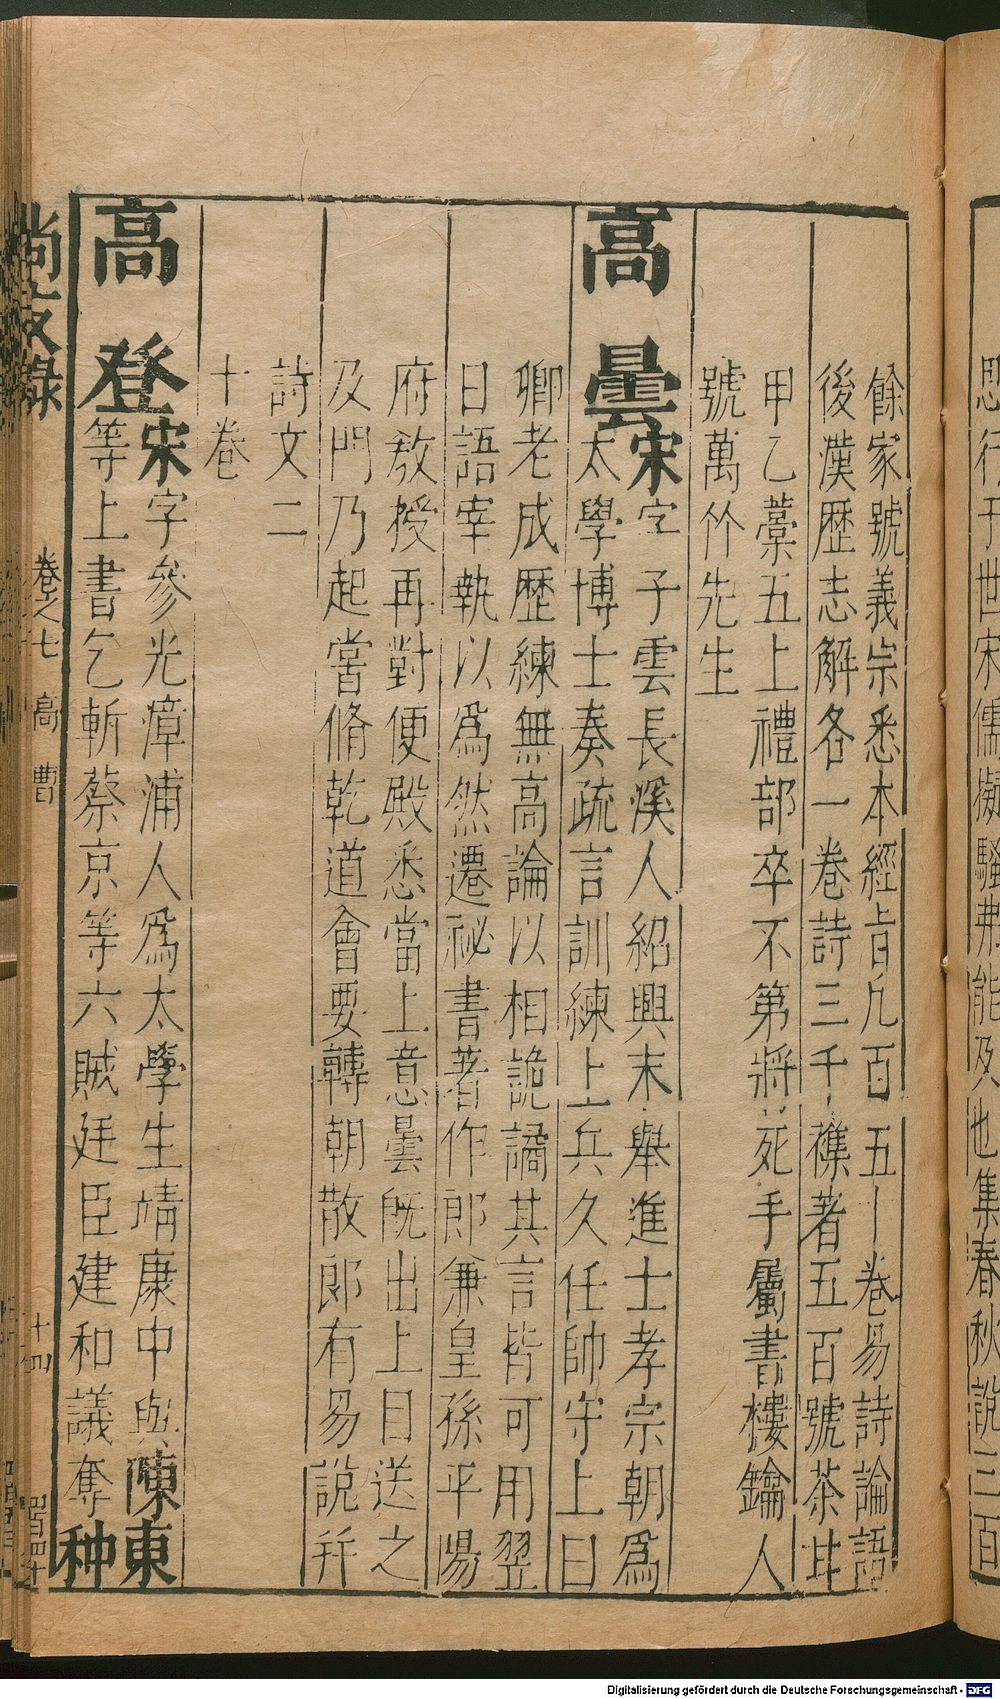 思行于世宋儒擬騷弗能及也集春秋說三百
餘家號義宗悉本經旨凡百五十卷易詩論語
後漢歷志解各一卷詩三千樵著五百號茶甘
甲乙藁五上禮部卒不第將死手屬書樓鑰人
號萬竹先生
高曇宋字子雲長溪人紹興末舉進士孝宗朝爲
太學博士奏疏言訓練上兵久任帥守上曰
卿老成歷練無高論以相詭譎其言皆可用翌
日語宰執以爲然遷祕書著作郎兼皇孫平陽
府教授再對便殿悉當上意曇旣出上目送之
及門乃起嘗脩乾道會要轉朝散郎有易說幷
詩文二
十卷
高登宋字參光漳浦人爲太學生靖康中與陳東
等上書乞斬蔡京等六賊廷臣建和議奪种
尚友錄 卷之七 高 曹 十四
Digitalisierung gefördert durch die Deutsche Forschungsgemeinschaft - DFG